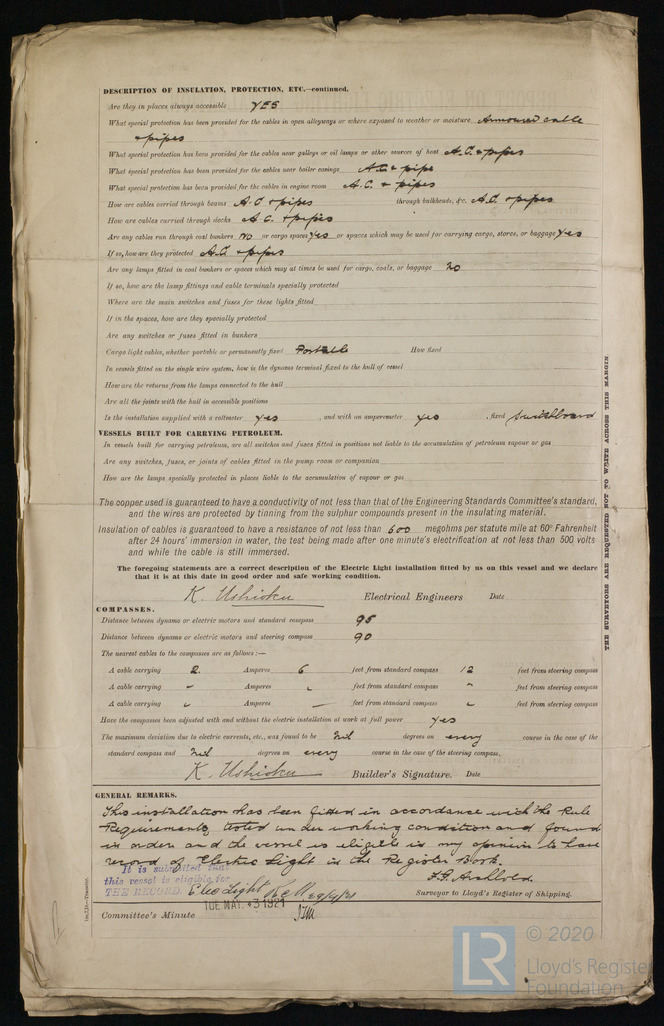 DESCRIPTION OF INSULATION, PROTECTION, ETC.—continued.
Are they in places always accessible yes
What special protection has been provided for the cables in open alleyways or where exposed to weather or moisture Armoured cable
& pipes
What special protection has been provided for the cables near galleys or oil lamps or other sources of heat A.C. & pipes
What special protection has been provided for the cables near boiler casings A.C. & pipe
What special protection has been provided for the cables in engine room A.C. & pipes
How are cables carried through beams A.C & pipes through bulkheads, &c. A.C. & pipes
How are cables carried through decks A.C. & pipes
Are any cables run through coal bunkers No or cargo spaces yes or spaces which may be used for carrying cargo, stores, or baggage yes
If so, how are they protected A.C & pipes
Are any lamps fitted in coal bunkers or spaces which may at times be used for cargo, coals, or baggage no
If so, how are the lamp fittings and cable terminals specially protected
Where are the main switches and fuses for these lights fitted
If in the spaces, how are they specially protected
Are any switches or fuses fitted in bunkers
Cargo light cables, whether portable or permanently fixed Portable How fixed
In vessels fitted on the single wire system, how is the dynamo terminal fixed to the hull of vessel
How are the returns from the lamps connected to the hull
Are all the joints with the hull in accessible positions
Is the installation supplied with a voltmeter yes , and with an amperemeter yes , fixed Switchboard
VESSELS BUILT FOR CARRYING PETROLEUM.
In vessels built for carrying petroleum, are all switches and fuses fitted in positions not liable to the accumulation of petroleum vapour or gas
Are any switches, fuses, or joints of cables fitted in the pump room or companion
How are the lamps specially protected in places liable to the accumulation of vapour or gas
The copper used is guaranteed to have a conductivity of not less than that of the Engineering Standards Committee's standard,
and the wires are protected by tinning from the sulphur compounds present in the insulating material.
Insulation of cables is guaranteed to have a resistance of not less than 600 megohms per statute mile at 60° Fahrenheit
after 24 hours' immersion in water, the test being made after one minute's electrification at not less than 500 volts
and while the cable is still immersed.
The foregoing statements are a correct description of the Electric Light installation fitted by us on this vessel and we declare
that it is at this date in good order and safe working condition.
K. Ushioku Electrical Engineers Date
COMPASSES.
Distance between dynamo or electric motors and standard compass 95
Distance between dynamo or electric motors and steering compass 90
The nearest cables to the compasses are as follows:—
A cable carrying 2. Amperes 6 feet from standard compass 12 feet from steering compass
A cable carrying " Amperes " feet from standard compass " feet from steering compass
A cable carrying " Amperes — feet from standard compass " feet from steering compass
Have the compasses been adjusted with and without the electric installation at work at full power yes
The maximum deviation due to electric currents, etc., was found to be Nil degrees on every course in the case of the
standard compass and Nil degrees on every course in the case of the steering compass.
K. Ushioku Builder's Signature. Date
GENERAL REMARKS.
This installation has been fitted in accordance with the Rule
Requirements tested under working condition and found
in order and the vessel is eligible in my opinion to have
record of Electric Light in the Register Book.
It is submitted that
this vessel is eligible for
THE RECORD. Elec Light 29/4/21
F.G. Archbold.
Surveyor to Lloyd's Register of Shipping.
TUE. MAY. 3 1921
Committee's Minute
THE SURVEYORS ARE REQUESTED NOT TO WRITE ACROSS THIS MARGIN
© 2020
LR
Lloyd's Register
Foundation